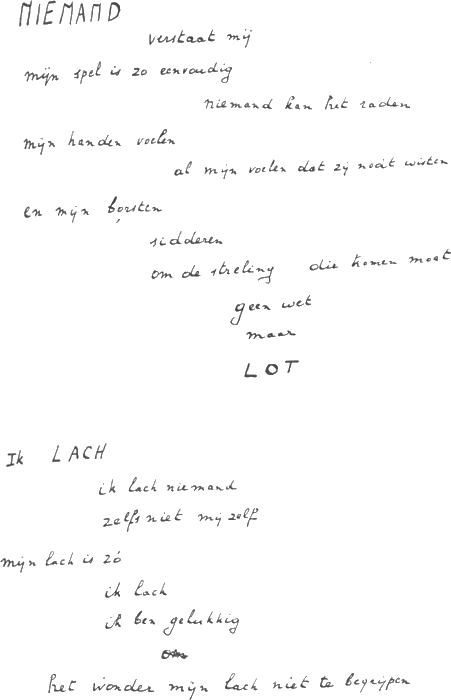 NIEMAND
verstaat mij
mijn spel is zo eenvoudig
niemand kan het raden
mijn handen voelen
al mijn voelen dat zij nooit wisten
en mijn borsten
sidderen
om de streling die komen moet
geen wet
maar
LOT
Ik LACH
ik lach niemand
zelfs niet mij zelf
mijn lach is zó
ik lach
ik ben gelukkig
het wonder mijn lach niet te begrijpen